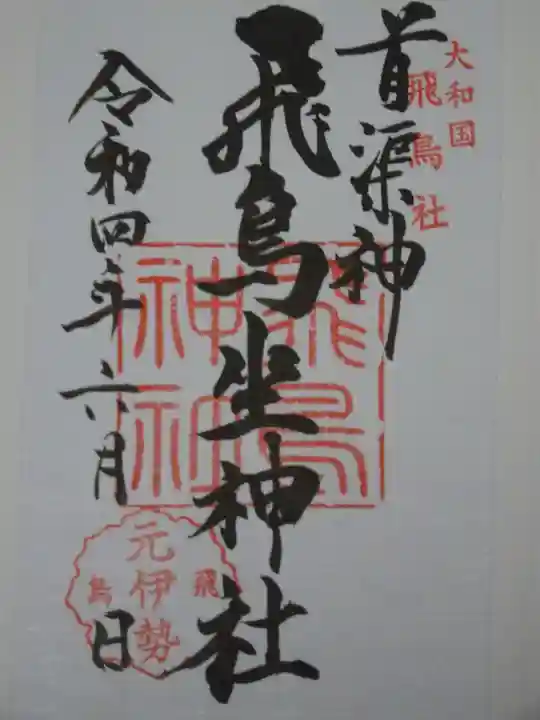 大和国
飛鳥社
首渠神
飛鳥坐神社
令和四年六月 日
飛鳥
神社
元伊勢
飛
鳥